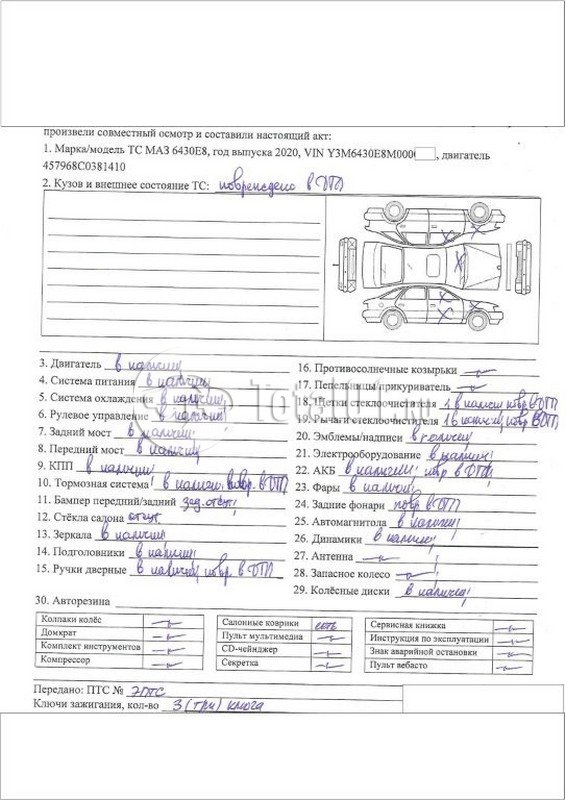 произвели совместный осмотр и составили настоящий акт:
1. Марка/модель ТС МАЗ 6430Е8, год выпуска 2020, VIN Y3M6430E8M000 , двигатель
457968C0381410
2. Кузов и внешнее состояние ТС: повреждено в ДТП
3. Двигатель в наличии
4. Система питания в наличии
5. Система охлаждения в наличии
6. Рулевое управление в наличии
7. Задний мост в наличии
8. Передний мост в наличии
9. КПП в наличии
10. Тормозная система в наличии, повр. в ДТП
11. Бампер передний/задний зад. отсут.
12. Стёкла салона отсут.
13. Зеркала в наличии
14. Подголовники в наличии
15. Ручки дверные в наличии, повр. в ДТП
16. Противосолнечные козырьки
17. Пепельницы/прикуриватель
18. Щетки стеклоочистителя 1 в наличии, повр. в ДТП
19. Рычаги стеклоочистителя 1 в наличии, повр. в ДТП
20. Эмблемы/надписи в наличии
21. Электрооборудование в наличии
22. АКБ в наличии, повр в ДТП
23. Фары в наличии
24. Задние фонари повр в ДТП
25. Автомагнитола в наличии
26. Динамики в наличии
27. Антенна
28. Запасное колесо
29. Колёсные диски в наличии
30. Авторезина
Колпаки колёс
Домкрат
Комплект инструментов
Компрессор
Салонные коврики есть
Пульт мультимедиа
CD-чейнджер
Секретка
Сервисная книжка
Инструкция по эксплуатации
Знак аварийной остановки
Пульт вебасто
Передано: ПТС № ЭПТС
Ключи зажигания, кол-во 3 (три) ключа